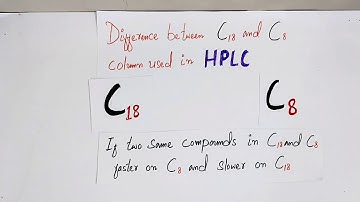 Difference between C18 and C8
column used in HPLC
C18
C8
If two same compounds in C18 and C8
faster on C8 and slower on C18